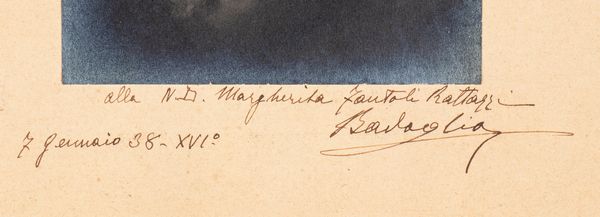 alla N.D. Margherita Fantoli Rattazzi
Badoglio
7 Gennaio 38 - XVIº